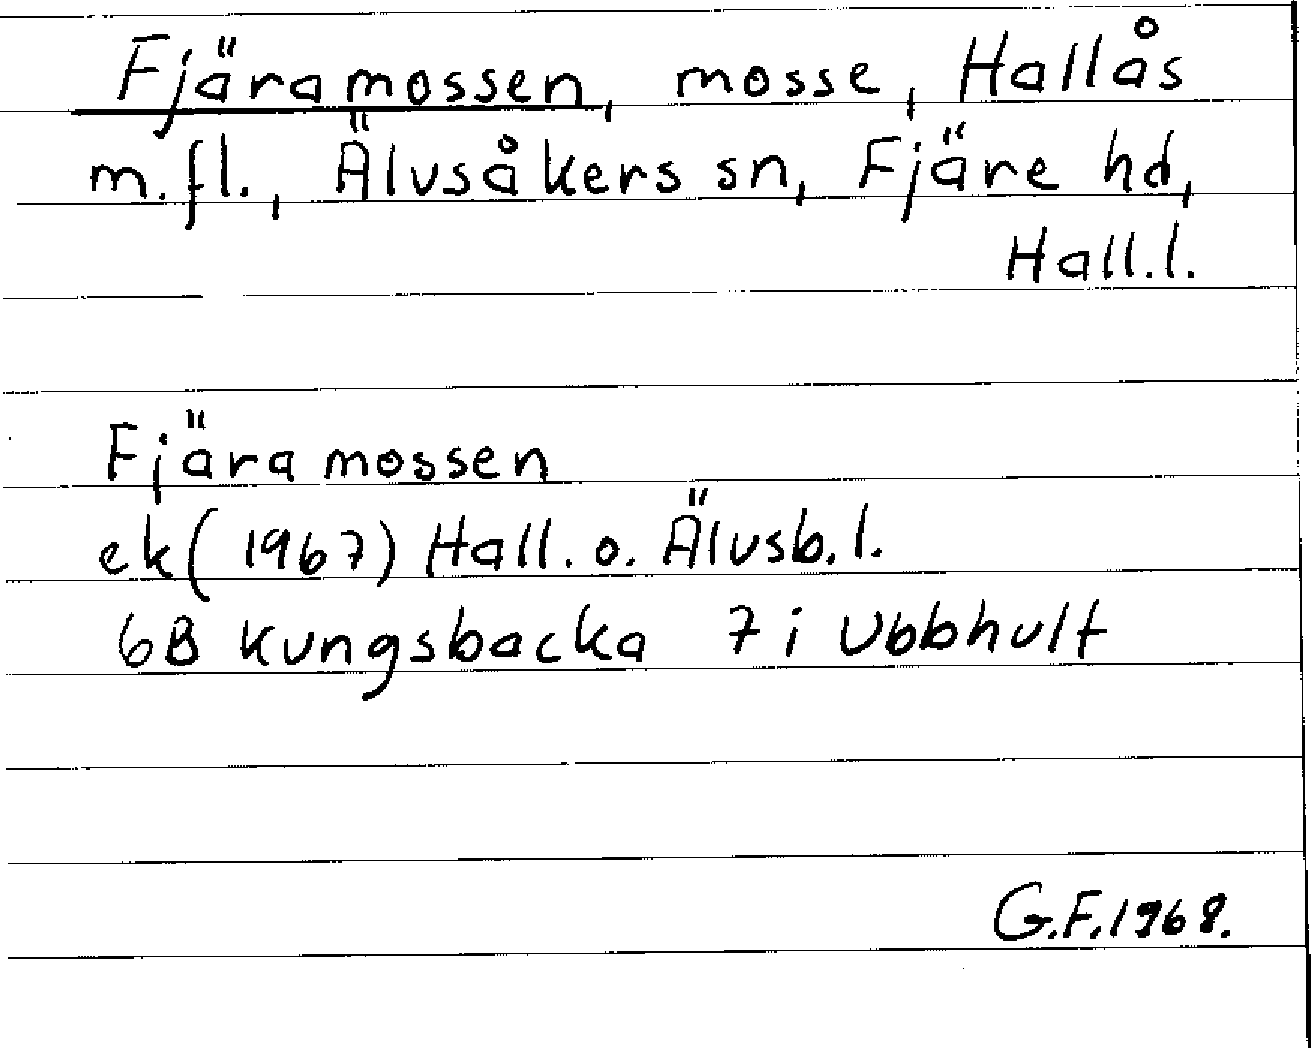 Fjäramossen, mosse, Hallås
m.fl., Älvsåkers sn, Fjäre hd,
Hall.l.
Fjäramossen
ek (1967) Hall. o. Älvsb.l.
6B Kungsbacka 7i Ubbhult
G.F. 1968.